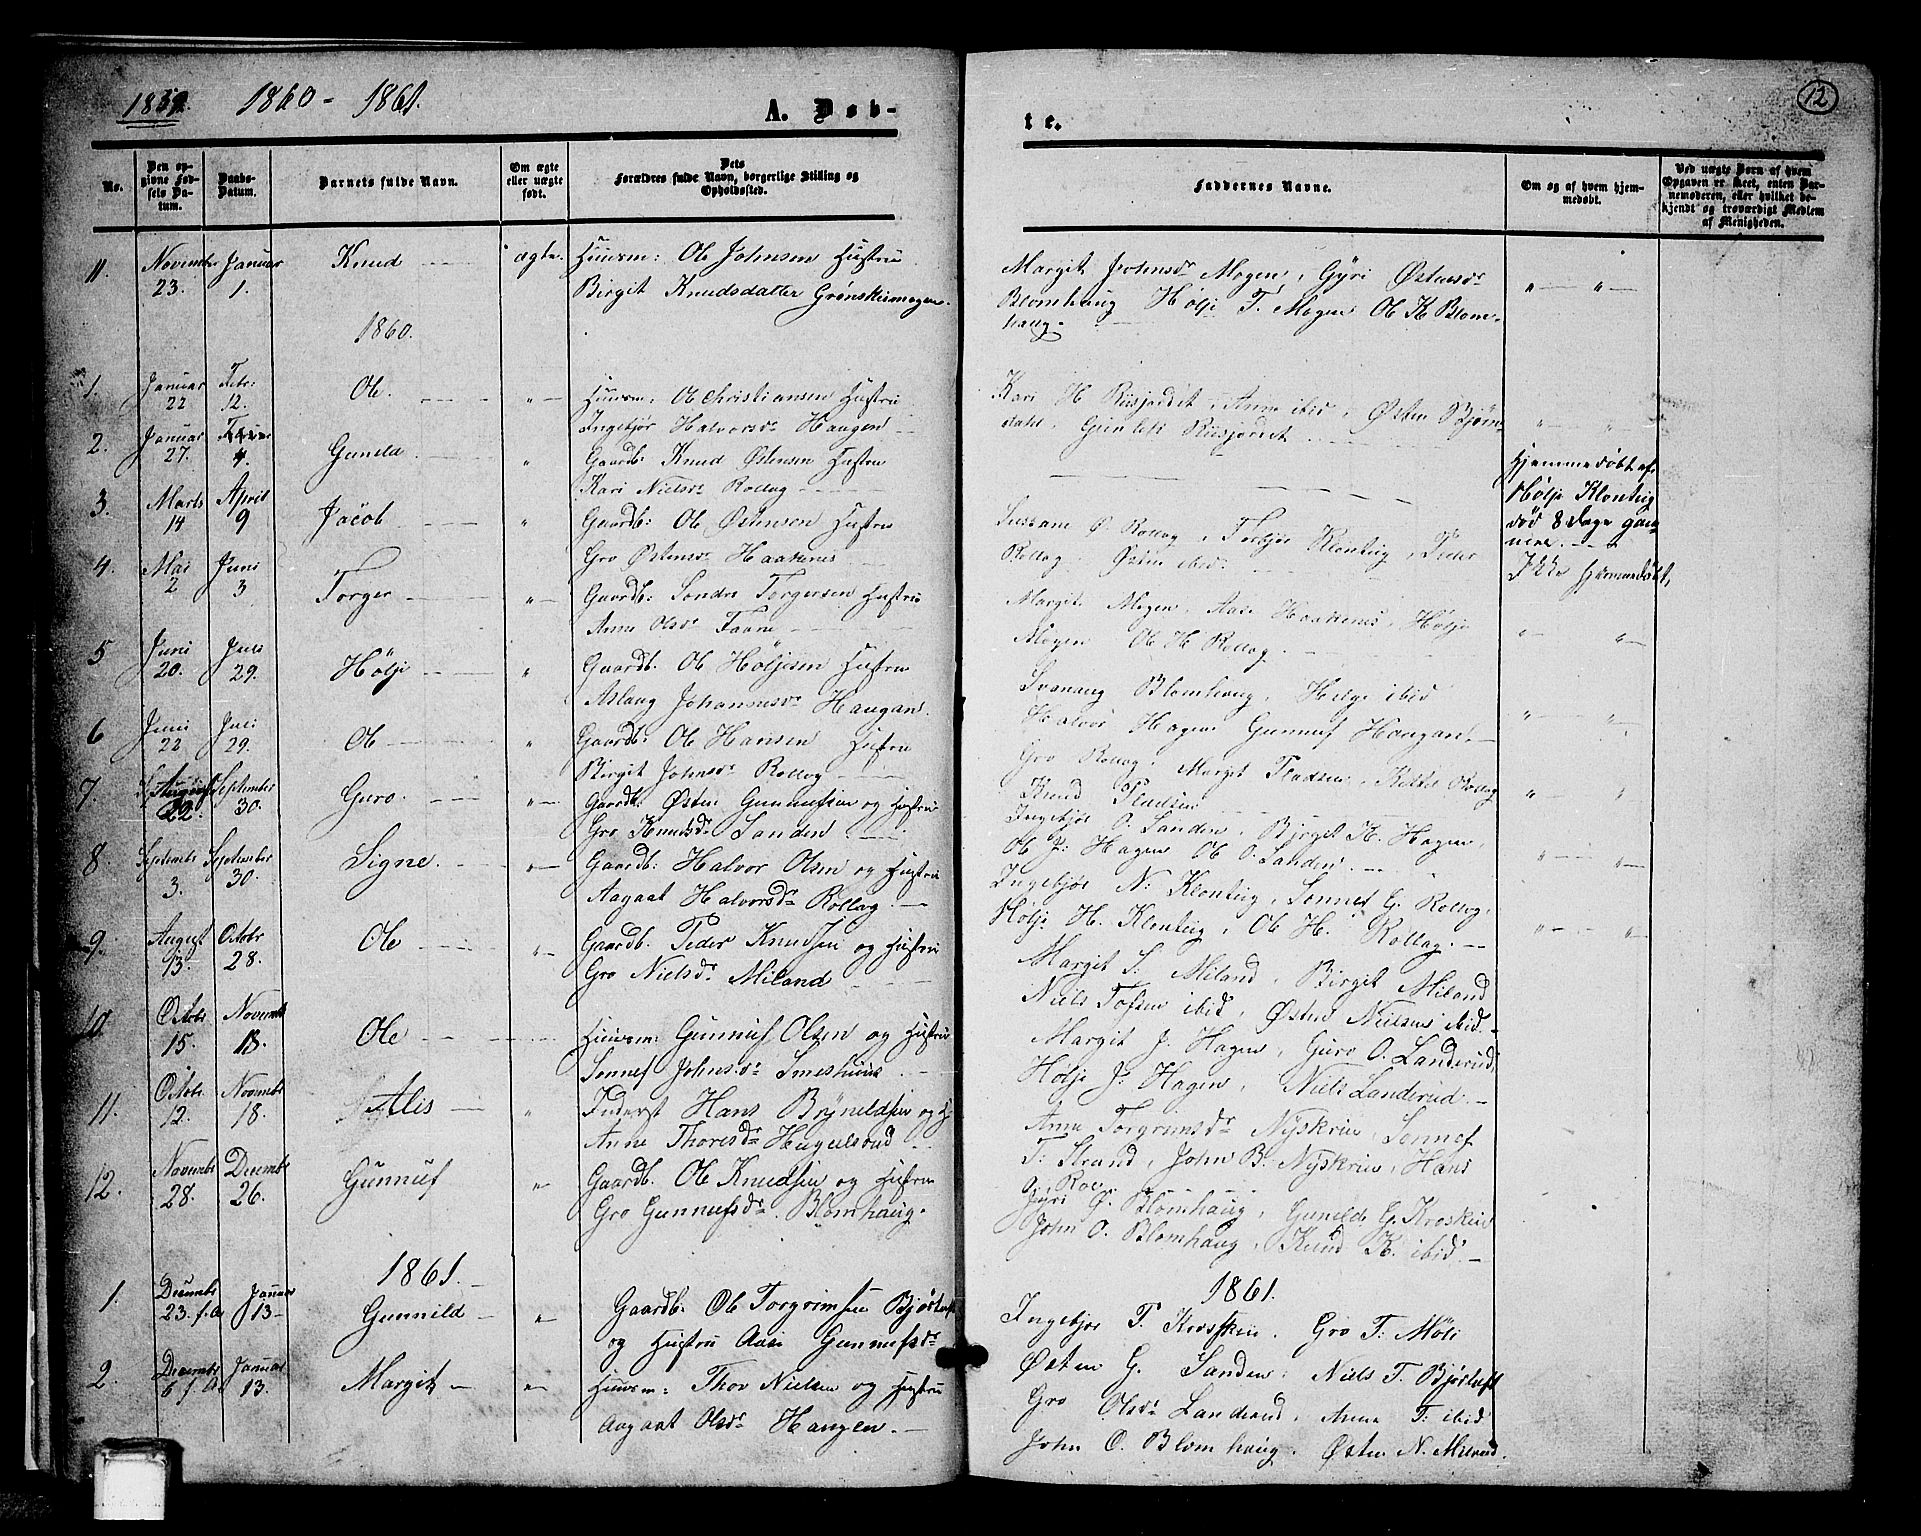 1859. 1860 - 1861.
A. Døb-
te.
12
No.
Den op-
givne Fød-
sels Da-
tum.
Daabs-
Datum.
Barnets fulde Navn.
Om ægte
eller uægte
født.
Dets
Forældres fulde Navn, borgerlige Stilling og
Opholdssted.
Faddernes Navne.
Om og af hvem hjem-
medøbt.
Ved uægte Børn af hvem
Opgaven er skeet, enten Bar-
nemoderen, eller hvilket be-
kjendt og troværdigt Medlem
af Menigheden.
11. Novembr 23. Januar 1. Knud ægte. Huusm: Ole Johnsen Hustru
Birgit Knudsdatter Grønskeimogen.
Margit Johnsdr Mogen, Gyri Østensdr
Blomhaug Hølje T. Mogen Ole K Blom-
haug.
1860.
1. Januar 22 Febr: 12. Ole. Huusm: Ole Christiansen Hustru
Ingebjør Halvorsdr Haugen
Kari H Riisjordet, Anne ibid, Østen Bjørn-
dahl, Gunlek Riisjordet
2. Januar 27. 4. Guneld Gaardb: Knud Østensen Hustru
Kari Nielsdr Rollag
Hjemmedøbt af
Hølje Klonteig
død 8 Dage gam-
mel.
3. Marts 14 April 9 Jacob Gaardb: Ole Østensen Hustru
Gro Østensdr Haakenes
O. Rollag, Torbjør Klonteig, Peder
Rollag Østen ibid.
Ikke hjemmedøbt,
4. Mai 2 Juni 3 Torger Gaardb: Sondre Torgersen Hustru
Anne Olsdr Faane
Margit Mogen, Aase Haakenes, Hølje
Mogen Ole H Rollag.
5 Juni 20. Juli 29. Hølje Gaardb. Ole Høljesen Hustru
Aslaug Johannesdr Haugan.
Svanaug Blomhaug, Helge ibid
Halvor Hagen Gunnuf Haugan.
6 Juni 22 Juli 29. Ole Gaardb: Ole Hansen Hustru
Birgit Johnsdr Rollag
Gro Rollag, Margit Pladsen, Rollag
Knud Pladsen
7. August 22. September 30. Guro. Gaardb: Østen Gunnufsen og Hustru
Gro Knudsdr Sanden.
Ingebjør O. Sanden, Birget K. Hagen,
Ole J: Hagen Ole O. Sanden.
8. Septembr 3. September 30. Signe. Gaardb: Halvor Olsen og Hustru
Aagaat Halvorsdr Rollag.
Ingebjør N: Klonteig, Sonnef G. Rollag,
Hølje H. Klonteig, Ole H. Rollag.
9. August 13. Octobr 28. Ole Gaardb. Peder Knudsen og Hustru
Gro Nielsdr Miland
Margit S: Miland, Birgit Miland
Niels Tofsen ibid, Østen Nielsen ibid.
10 Octobr 15. Novembr 18. Ole Huusm: Gunnuf Olsen og Hustru
Sonnef Johnsdr Smeshuus.
Margit J. Hagen, Guro O. Landerud,
Hølje J: Hagen, Niels Landerud.
11. Octobr 12. Novembr 18. Atlis Inderst Hans Brynildsen og H
Anne Thoresdr
Anne Torgrimsdr Nyskrien, Sonnef
T: Strand, John B. Nyskrien, Hans
O. Roe.
12. Novembr 28. Decembr 26. Gunnuf Gaardb. Ole Knudsen og Hustru
Gro Gunnufsdr. Blomhaug.
Jyri G. Blomhaug, Guneld G. Kroskein
John O. Blomhaug, Knud K. ibid.
1861.
1861.
1. Decembr 23. f. A. Januar 13. Gunnild Gaardb. Ole Torgrimsen Bjørtuft
og Hustru Aase Gunnufsdr
Ingebjør T. Kroskein. Gro T: Møli
Østen G. Sanden. Niels T. Bjørtuft
2. Decembr 6 f. A. Januar 13. Margit Huusm: Thov Nielsen og Hustru
Aagaat Olsdr Haugen.
Gro Olsdr Landerud, Anne T: ibid
John O. Blomhaug. Østen N. Miland.